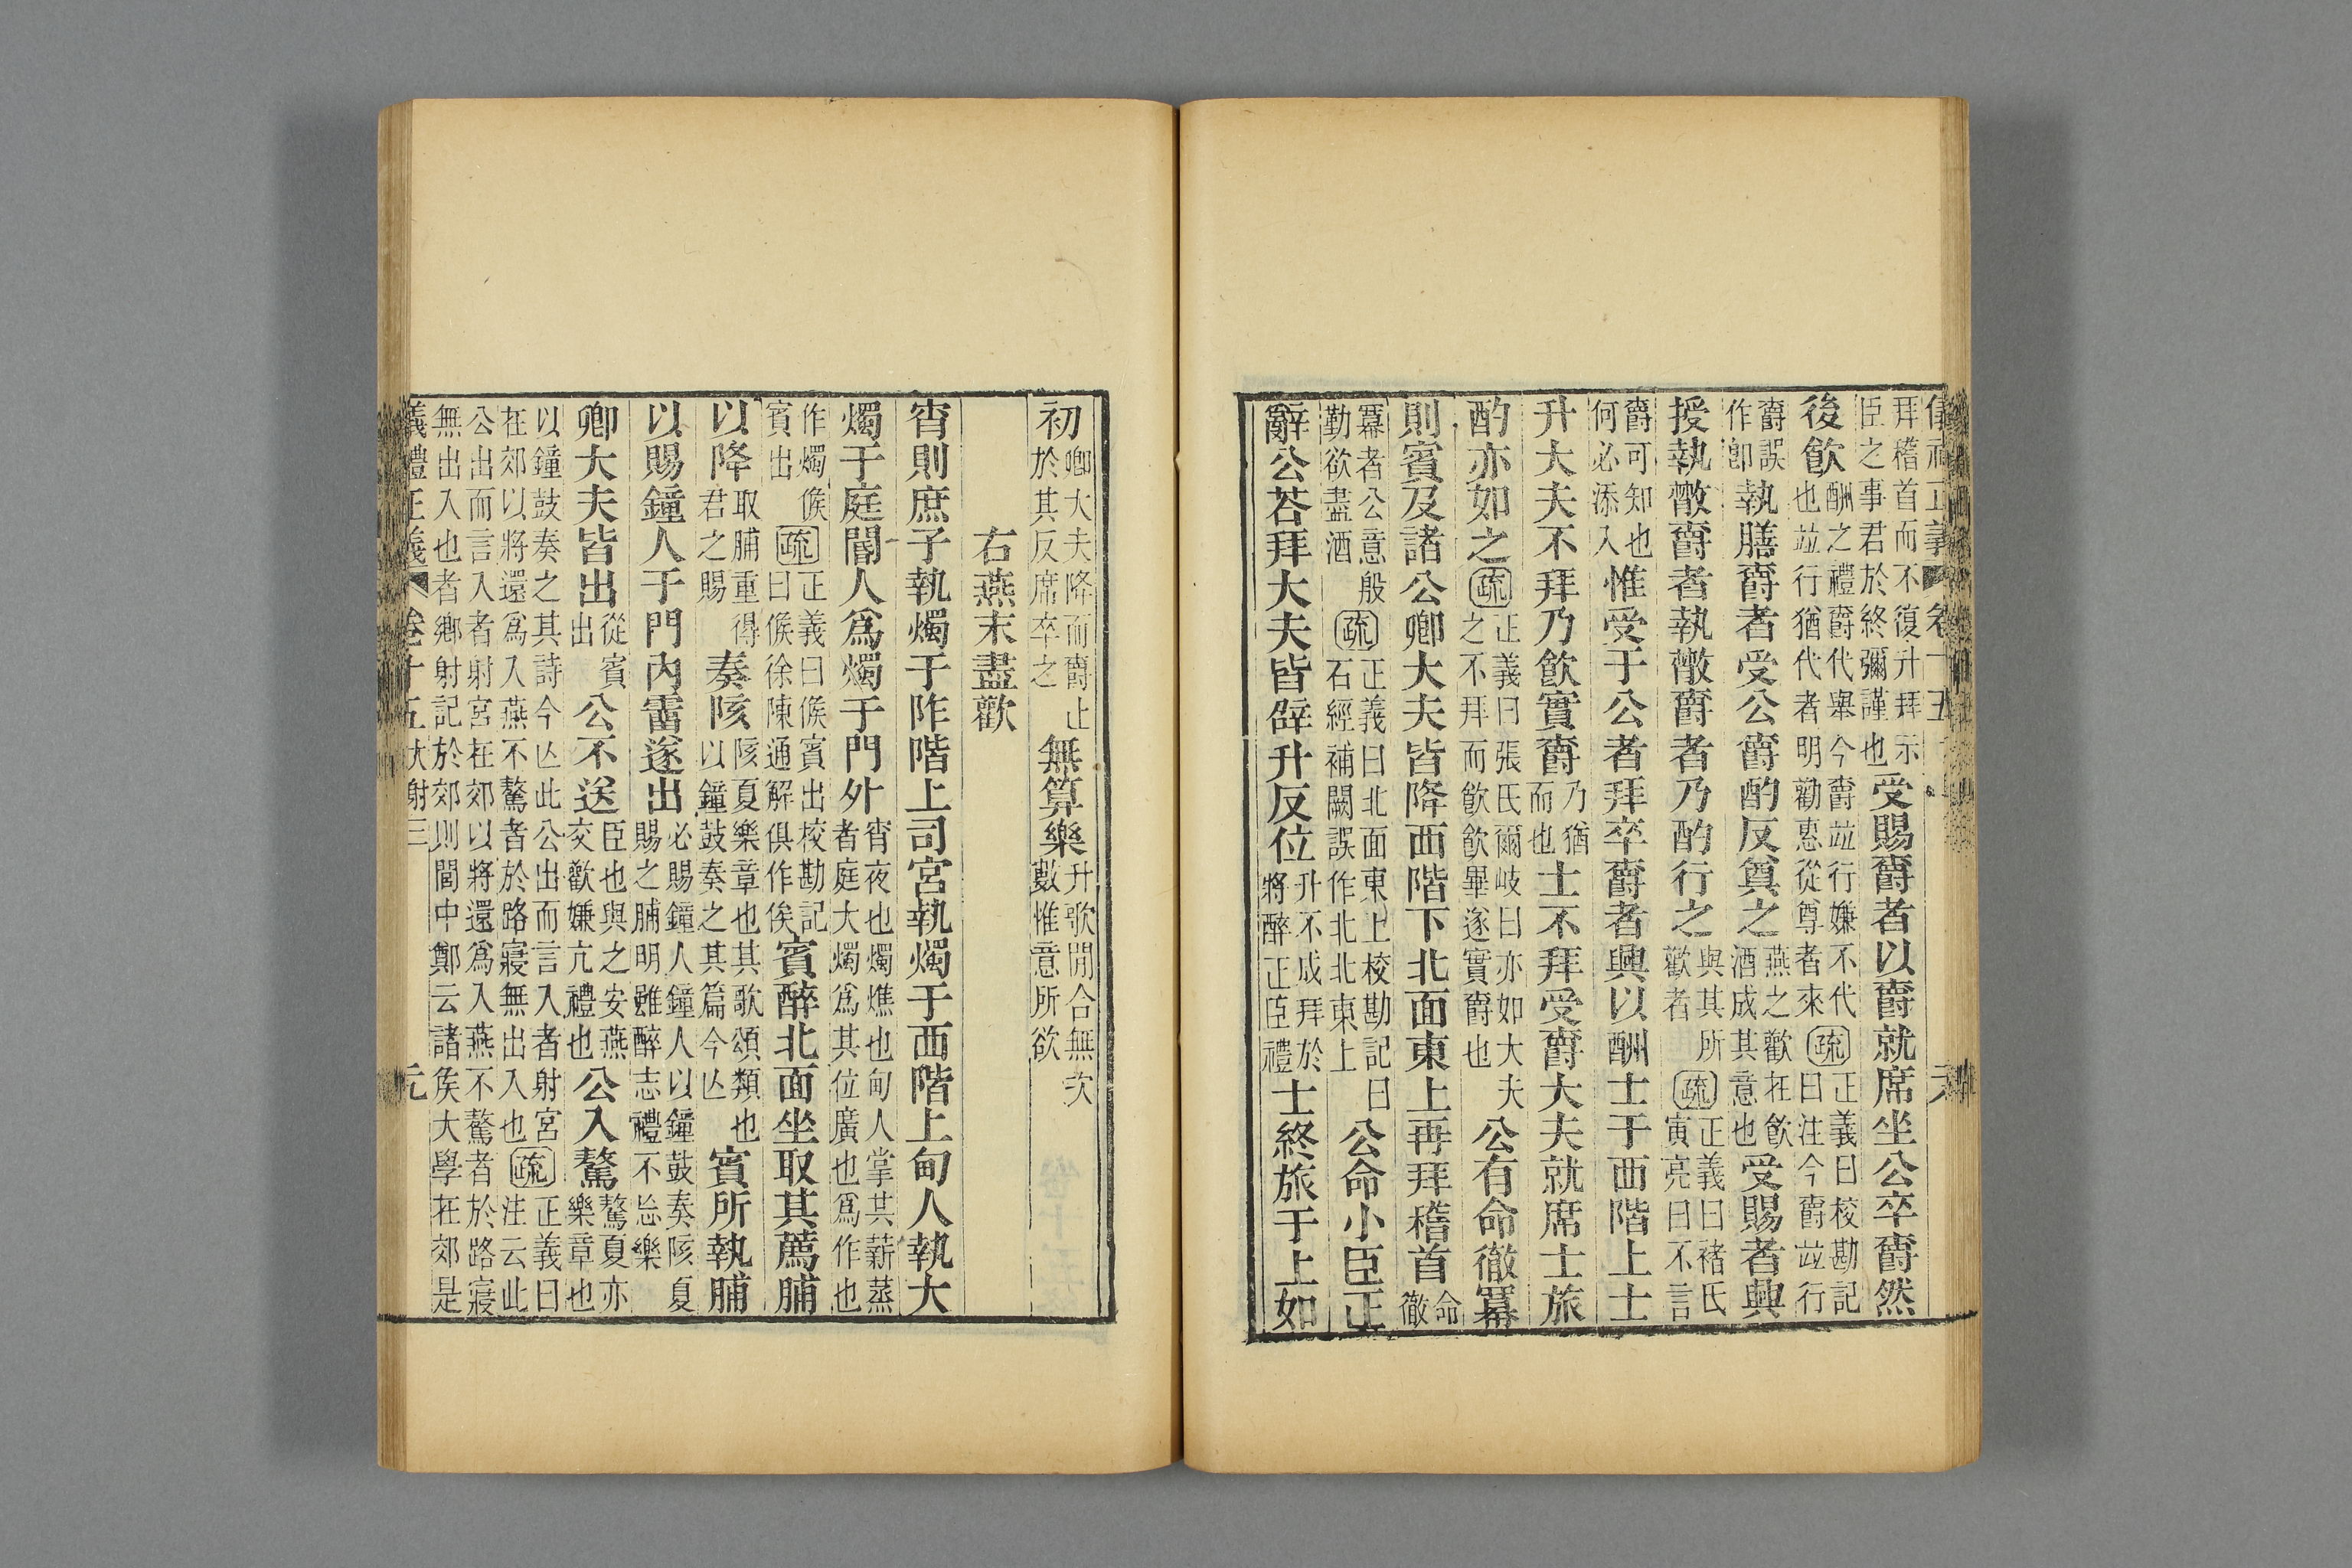 拜稽首而不復升拜示臣之事君於終彌謹也受賜爵者以爵就席坐公卒爵然
後飲酬之禮爵代舉今爵竝行嫌不代也竝行猶代者明勸惠從尊者來疏正義曰校勘記曰注今爵竝行
爵誤作卽執膳爵者受公爵酌反奠之燕之歡在飲酒成其意也受賜者興
授執散爵者執散爵者乃酌行之與其所歡者疏正義曰褚氏寅亮曰不言
爵可知也何必添入惟受于公者拜卒爵者興以酬士于西階上士
升大夫不拜乃飲實爵乃猶而也士不拜受爵大夫就席士旅
酌亦如之疏正義曰張氏爾岐曰亦如大夫之不拜而飲飲畢遂實爵也公有命徹冪
則賓及諸公卿大夫皆降西階下北面東上再拜稽首命徹
冪者公意殷勤欲盡酒疏正義曰北面東上校勘記曰石經補闕誤作北北東上公命小臣正
辭公荅拜大夫皆辟升反位升不成拜於將醉正臣禮士終旅于上如
初卿大夫降而爵止於其反席卒之無算樂升歌閒合無次數惟意所欲
右燕末盡歡
宵則庶子執燭于阼階上司宮執燭于西階上甸人執大
燭于庭閽人爲燭于門外宵夜也燭燋也甸人掌其薪蒸者庭大燭爲其位廣也爲作也
作燭候賓出疏正義曰候賓出校勘記曰候徐陳通解俱作俟賓醉北面坐取其薦脯
以降取脯重得君之賜奏陔陔夏樂章也其歌頌類也以鐘鼓奏之其篇今亾賓所執脯
以賜鐘人于門內霤遂出必賜鐘人鐘人以鐘鼓奏陔夏賜之脯明雖醉志禮不忘樂
卿大夫皆出從賓出公不送臣也與之安燕交歡嫌亢禮也公入驁驁夏亦樂章也
以鐘鼓奏之其詩今亾此公出而言入者射宮在郊以將還爲入燕不驁者於路寢無出入也疏正義曰注云此
公出而言入者射宮在郊以將還爲入燕不驁者於路寢
無出入也者鄉射記於郊則閭中鄭云諸侯大學在郊是
儀禮正義 卷十五 大射三